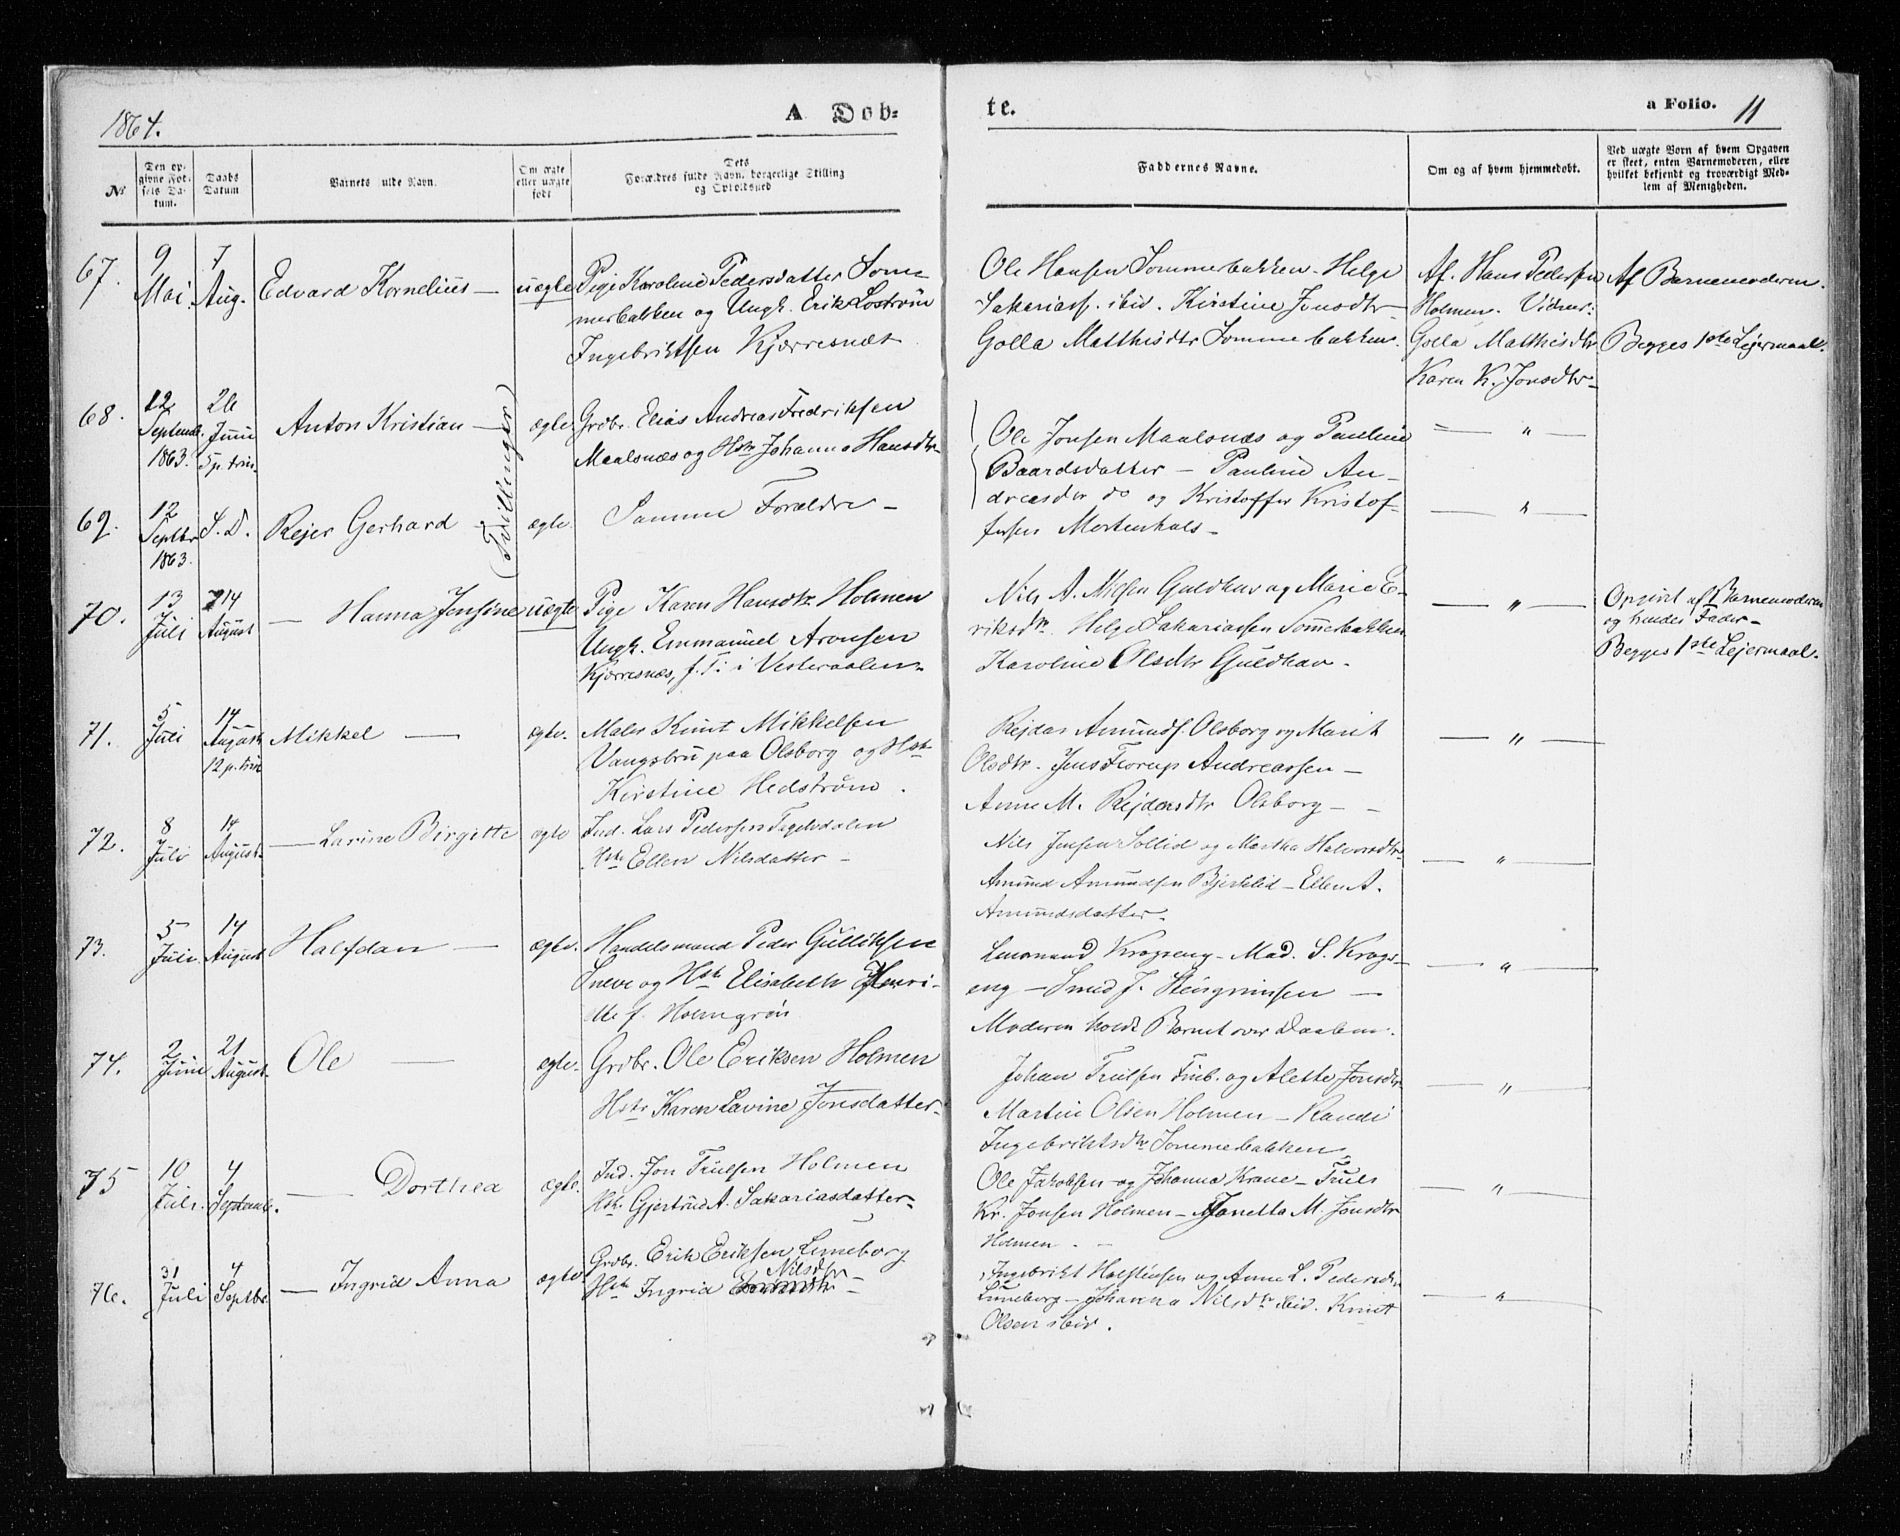 1864.
A Døb-
te.
a Folio. 11
№
Den op-
givne Fød-
sels Da-
tum.
Daabs
Datum
Barnets fulde Navn.
Om ægte
eller uægte
født
Dets
Forældres fulde Navn, borgerlige Stilling
og Opholdssted
Faddernes Navne.
Om og af hvem hjemmedøbt.
Ved uægte Børn af hvem Opgaven
er skeet, enten Barnemoderen, eller
hvilket bekjendt og troværdigt Med-
lem af Menigheden.
67.
9
Mai
7
Aug.
Edvard Kornelius —
uægte
Pige Karoline Pedersdatter Som-
merbakken og Ungk. Erik Lostrøm
Ingebriktsen Kjærresnæs
Ole Hansen Sommerbakken. Helge
Sakariass. ibid. Kirstine Jensdtr
Golla Matthisdtr Sommerbakken.
Af. Hans Pedersen
Holmen. Vidner:
Golla Matthisdtr
Karen K. Jonsdtr —
Af Barnemoderen.
Begges 1ste Lejermaal.
68.
12
Septemb.
1863.
26
Juni
5 p. trin.
Anton Kristian —
(Tvillinger)
ægte
Grdbr. Elias Andreas Fredriksen
Maalsnæs og Hstr Johanna Hansdtr
Ole Jonsen Maalsnæs og Pauline
Baardsdatter — Pauline An-
dreasdtr do og Kristoffer Kristof-
fersen Mortenhals —
— " —
69.
12
Septbr
1863.
S. D.
Rejer Gerhard
ægte.
Samme Forældre —
— " —
70.
13
Juli
14
August
— Hanna Jensine
uægte
Pige Karen Hansdtr Holmen
Ungk. Emmanuel Aronsen
Kjærresnæs, f. T. i Vesteraalen
Nils A. Nilsen Guldhav og Marie E-
riksdtr. Helge Sakariassen Sommerbakken
Karoline Olsdtr Guldhav —
— " —
Opgivet af Barnemoderen
og hendes Fader —
Begges 1ste Lejermaal.
71.
5
Juli
14
August
12 p. trin
Mikkel —
ægte.
Maler Knut Mikkelsen
Vangsbru paa Olsborg og Hstr
Kirstine Hedstrøm.
Rejdar Amunds. Olsborg og Marit
Olsdtr. Jens Florup Andreassen —
Anne M. Rejdersdtr Olsborg — —
— " —
72.
8
Juli
14
August
— Larine Birgitte
ægte
Ind. Lars Pedersen Fagelidalen
Hstr Ellen Nilsdatter —
Nils Jensen Sollid og Martha Halvorsdtr
Amund Amundsen Bjerklid — Ellen A.
Amundsdatter.
— " —
73.
5
Juli
14
August
Halfdan —
ægte.
Handelsmand Peder Gulliksen
Sneve og Hstr Elisabeth Henri-
tte f. Holmgrøn
Lensmand Krogseng — Mad. S. Krogs-
eng — Smed J. Stengrimsen —
Moderen holdt Barnet over Daaben.
— " —
74.
2
Juni
21
August
Ole —
ægte.
Grdbr. Ole Eriksen Holmen
Hstr Karen Lavine Jonsdatter
Johan Trulsen Finb. og Alette Jonsdtr
Martin Olsen Holmen — Randi
Ingebriktsdtr Sommerbakken
— " —
75
10
Juli.
4
Septemb.
— Dorthea
ægte.
Ind. Jon Trulsen Holmen
Hstr. Gjertrud A. Sakariasdatter
Ole Jakobsen og Johanna Krane — Truls
Kr. Jonsen Holmen — Janetta M. Jonsdtr
Holmen. —
— " —
76.
31
Juli
4
Septbr.
— Ingrid Anna
ægte
Grdbr. Erik Eriksen Luneborg
Nilsdtr
Hstr Ingrid —
Ingebrikt Halstensen og Anne L. Pedersdtr
Luneborg — Johanna Nilsdtr ibid. Knut
Olsen ibid.
— " —